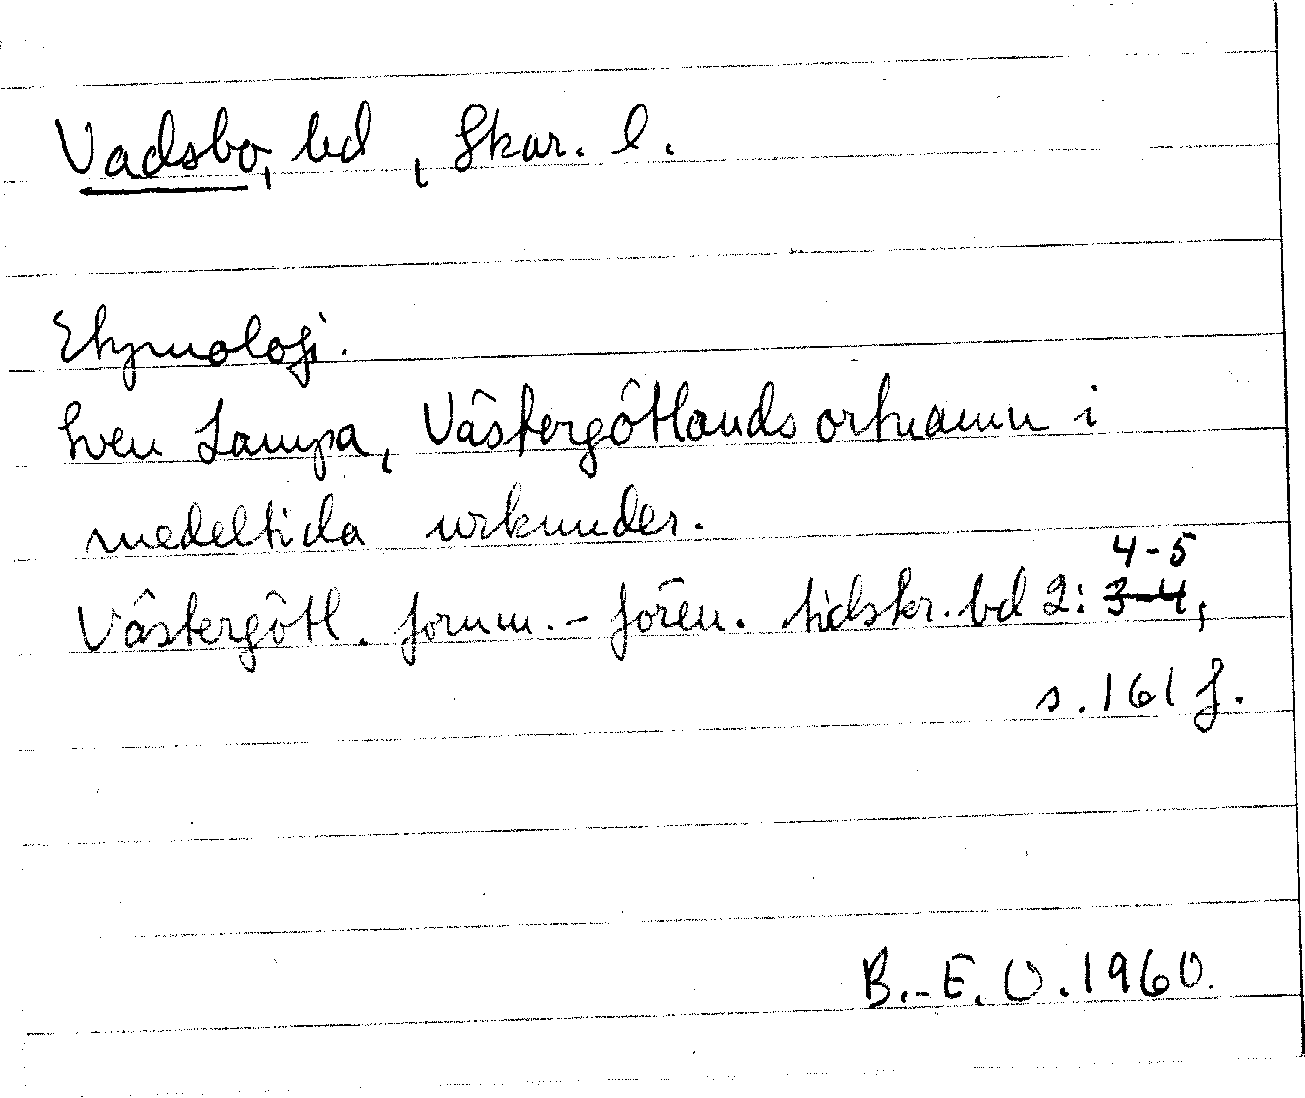 Vadsbo, hd, Skar. l.
Etymologi.
Sven Lampa, Västergötlands ortnamn i
medeltida urkunder.
4-5
Västergötl. fornm.-fören. tidskr. bd 2: 3-4,
s. 161 f.
B.-E. O. 1960.